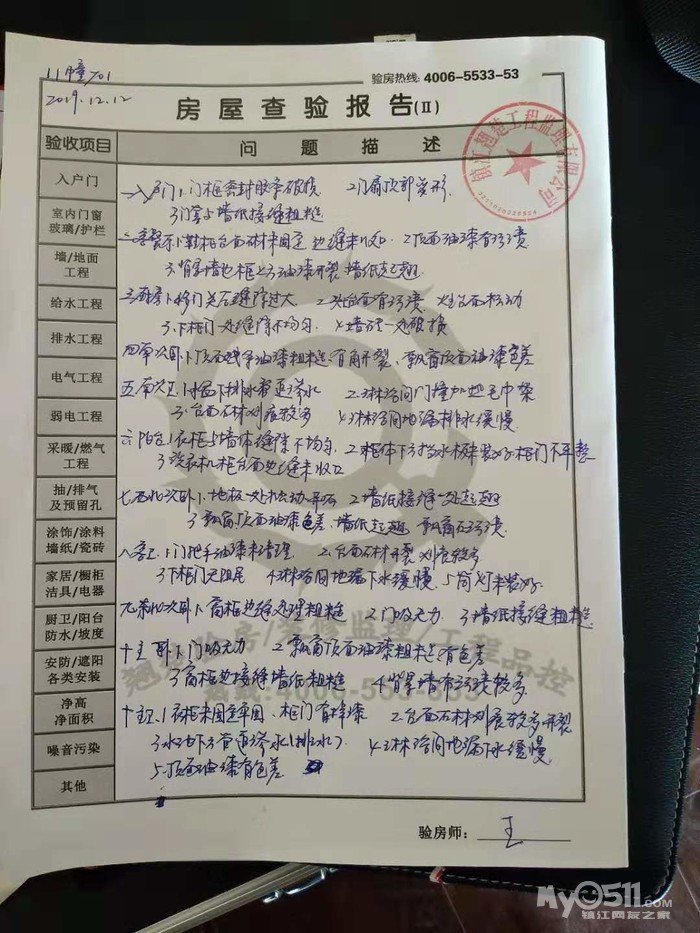 11幢701
验房热线: 4006-5533-53
2019.12.12
房屋查验报告(Ⅱ)
镇江翘楚工程监理有限公司
验收项目
问题描述
入户门
室内门窗
玻璃/护栏
墙/地面
工程
给水工程
排水工程
电气工程
弱电工程
采暖/燃气
工程
抽/排气
及预留孔
涂饰/涂料
墙纸/瓷砖
家居/橱柜
洁具/电器
厨卫/阳台
防水/坡度
安防/遮阳
各类安装
净高
净面积
噪音污染
其他
一入户门1.门框密封胶条破损 2.门扇顶部变形
3.门套与墙纸接缝粗糙
二客餐厅1.鞋柜台面石材未固定 边缝未收口 2.顶面油漆有污渍
3.背景墙 油漆开裂 墙纸起翘
三厨房1.移门关合缝隙过大 2.灶台面有污渍
3.下柜门一处缝隙不均匀 4.墙砖一处破损
四南次卧1.顶面 油漆粗糙 有角开裂、飘窗顶面油漆色差
五南次卫1.水盆下排水管道渗水 2.淋浴间门撞 毛巾架
3.台面石材划痕较多 4.淋浴间地漏排水缓慢
六阳台1.衣柜与墙体缝隙不均匀 2.柜体下方挡水板未装好 柜门不平整
3.洗衣机柜台面边缝未收口
七西北次卧1.地板一处松动 2.墙纸接缝一处起翘
3.飘窗顶面油漆色差、墙纸起翘 飘窗石污渍
八客卫1.门把手油漆未清理 2.台面石材开裂 划痕较多
3.下柜门无阻尼 4.淋浴间地漏下水缓慢 5.筒灯未装好
九东北次卧1.窗框边缝处理粗糙 2.门吸无力 3.墙纸接缝粗糙
十主卧1.门吸无力 2.飘窗顶面油漆粗糙 有色差
3.窗框边接缝墙纸粗糙 4.背景墙有污渍较多
十主卫1.衣柜未固定牢固、柜门有掉漆 2.台面石材划痕较多 开裂
3.水池下方管道渗水(排水) 4.淋浴间地漏下水缓慢
5.顶面油漆有色差
翘楚验房/装修监理/工程品控
热线:4006-5533-53
验房师: 王
My0511.com
镇江网友之家